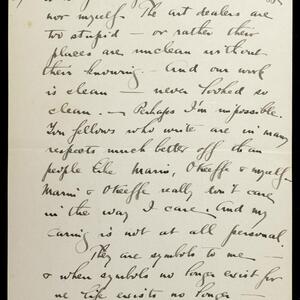 nor myself. The art dealers are
too stupid — or rather their
places are unclean without
their knowing — And our work
is clean — never looked so
clean. — Perhaps I'm impossible.
You fellows who write are in many
respects much better off than
people like Marin, O'Keeffe & myself —
Marin & O'Keeffe really don't care
in the way I care. And my
caring is not at all personal.
They are symbols to me —
& when symbols no longer exist for
me life exists no longer —